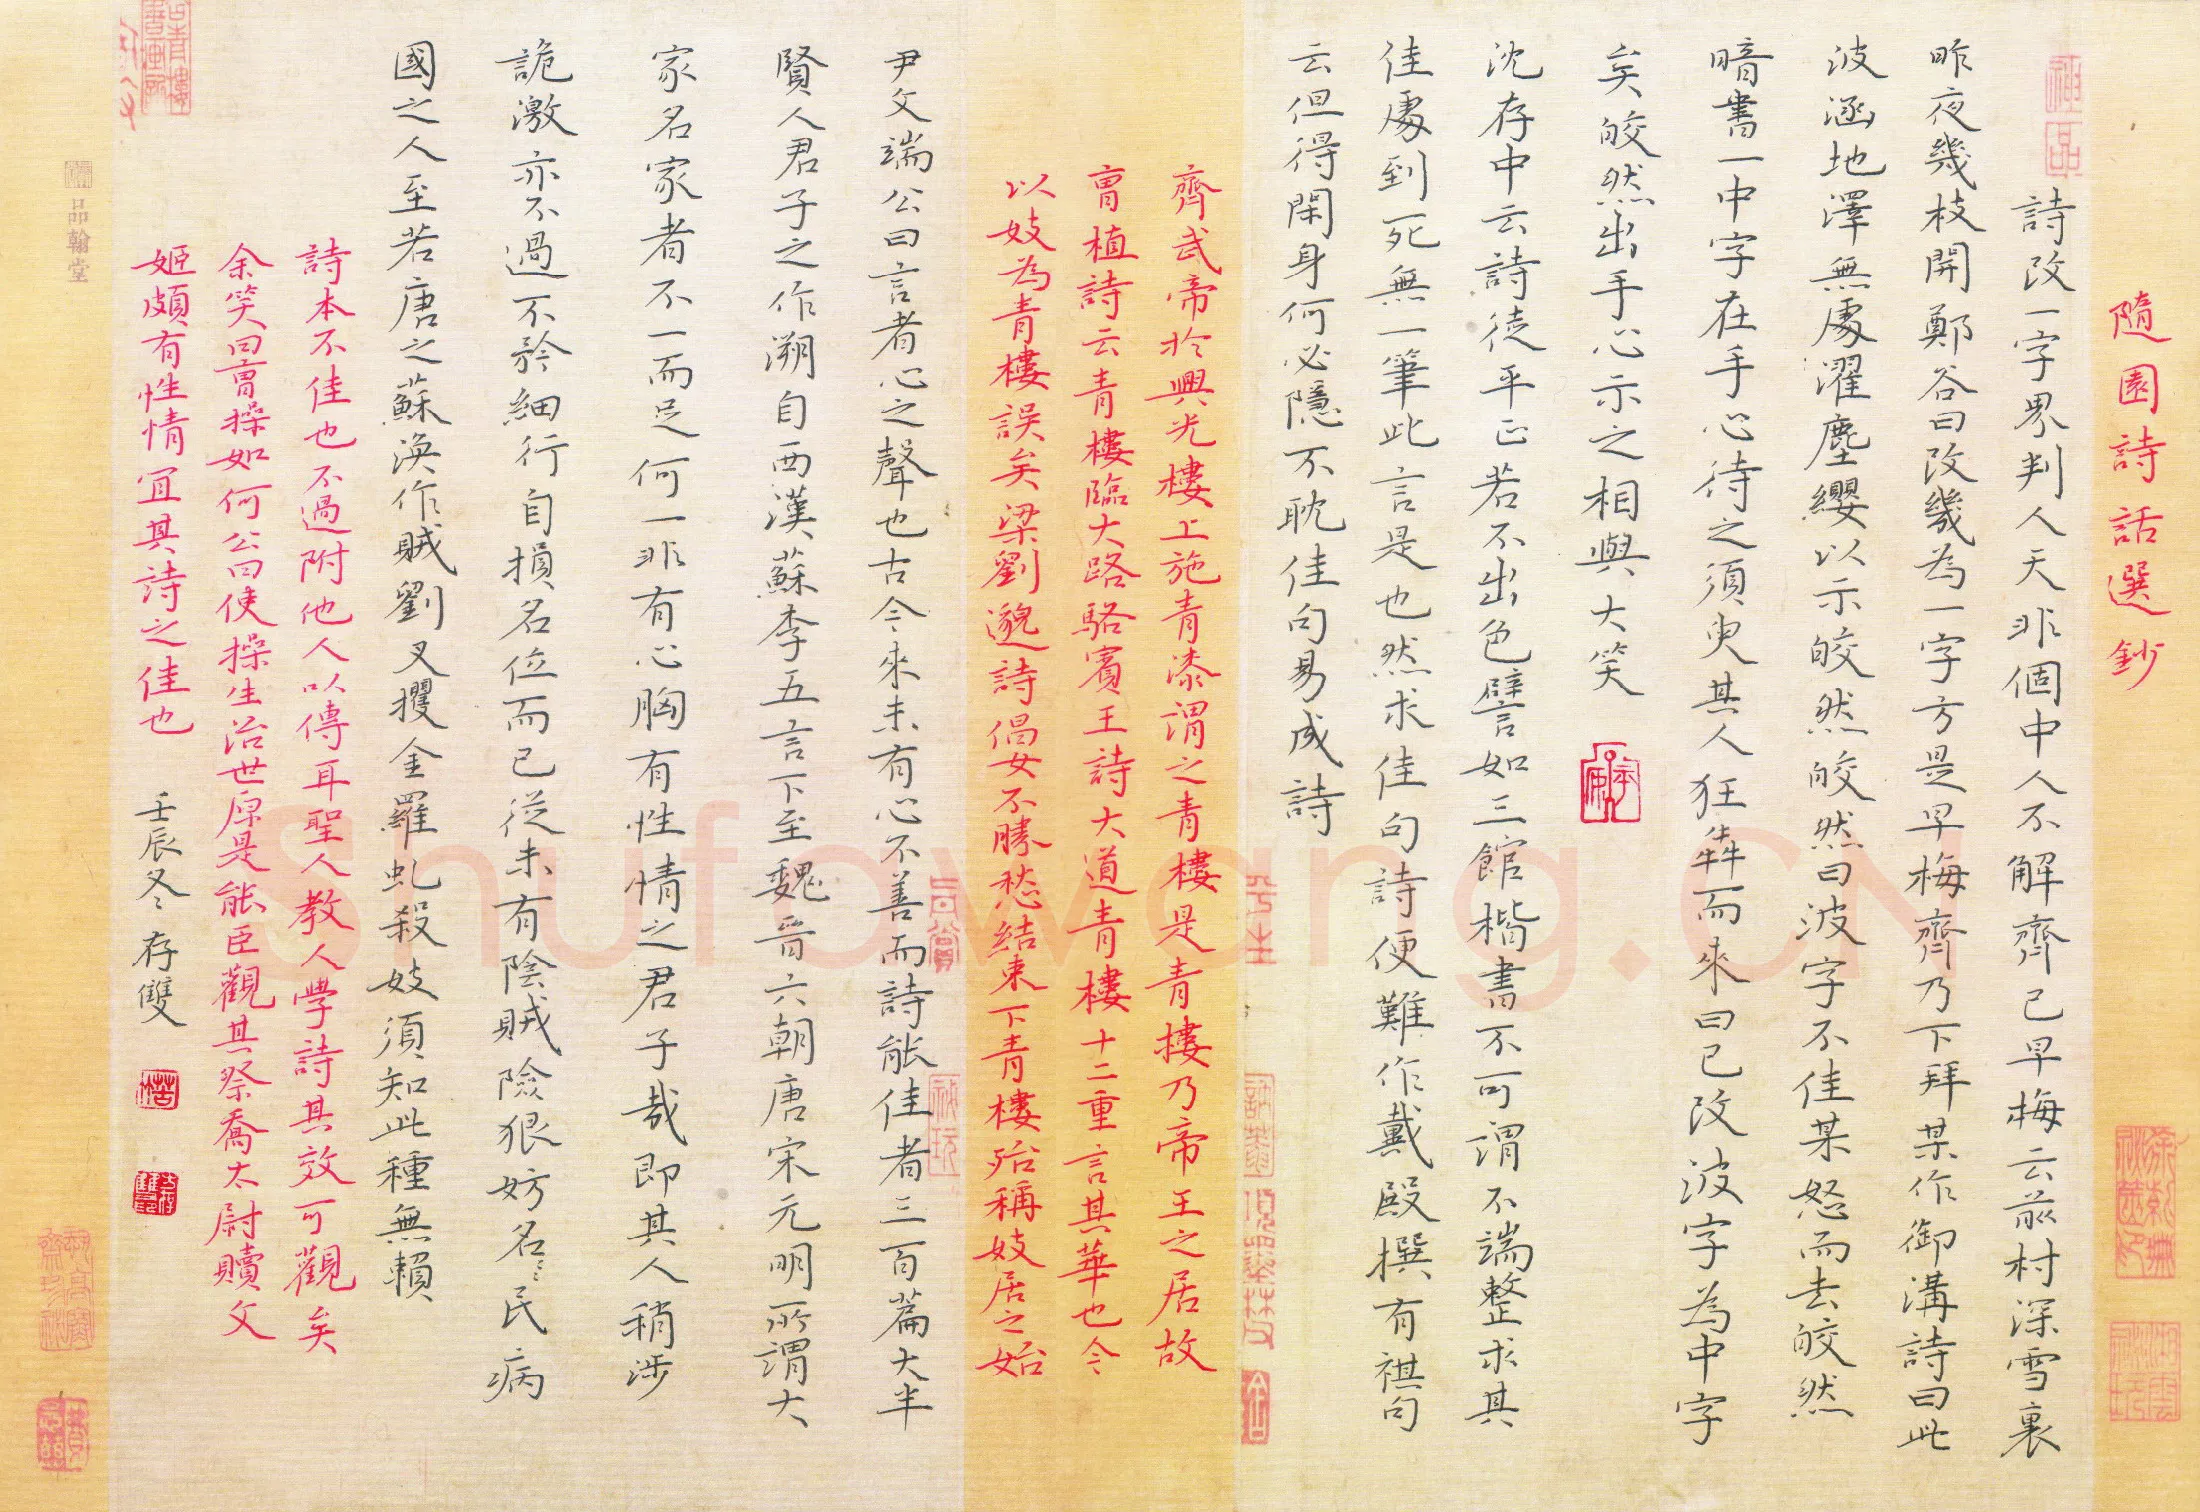 隨園詩話選鈔
詩改一字界判人天非個中人不解齊己早梅云前村深雪裏
昨夜幾枝開鄭谷曰改幾為一字方是早梅齊乃下拜某作御溝詩曰此
波涵地澤無處濯塵纓以示皎然皎然曰波字不佳某怒而去皎然
暗書一中字在手心待之須臾其人狂犇而來曰已改波字為中字
矣皎然出手心示之相與大笑
沈存中云詩徒平正若不出色譬如三館楷書不可謂不端整求其
佳處到死無一筆此言是也然求佳句詩便難作戴殿撰有祺句
云但得閑身何必隱不耽佳句易成詩
齊武帝於興光樓上施青漆謂之青樓是青樓乃帝王之居故
曹植詩云青樓臨大路駱賓王詩大道青樓十二重言其華也今
以妓為青樓誤矣梁劉邈詩倡女不勝愁結束下青樓殆稱妓居之始
尹文端公曰言者心之聲也古今來未有心不善而詩能佳者三百篇大半
賢人君子之作溯自西漢蘇李五言下至魏晉六朝唐宋元明所謂大
家名家者不一而足何一非有心胸有性情之君子哉即其人稍涉
詭激亦不過不矜細行自損名位而已從未有陰賊險狠妨名〻民病
國之人至若唐之蘇渙作賊劉叉攫金羅虬殺妓須知此種無賴
詩本不佳也不過附他人以傳耳聖人教人學詩其效可觀矣
余笑曰曹操如何公曰使操生治世原是能臣觀其祭喬太尉贖文
姬頗有性情宜其詩之佳也
壬辰冬 存雙
品翰堂
Shufawang.CN